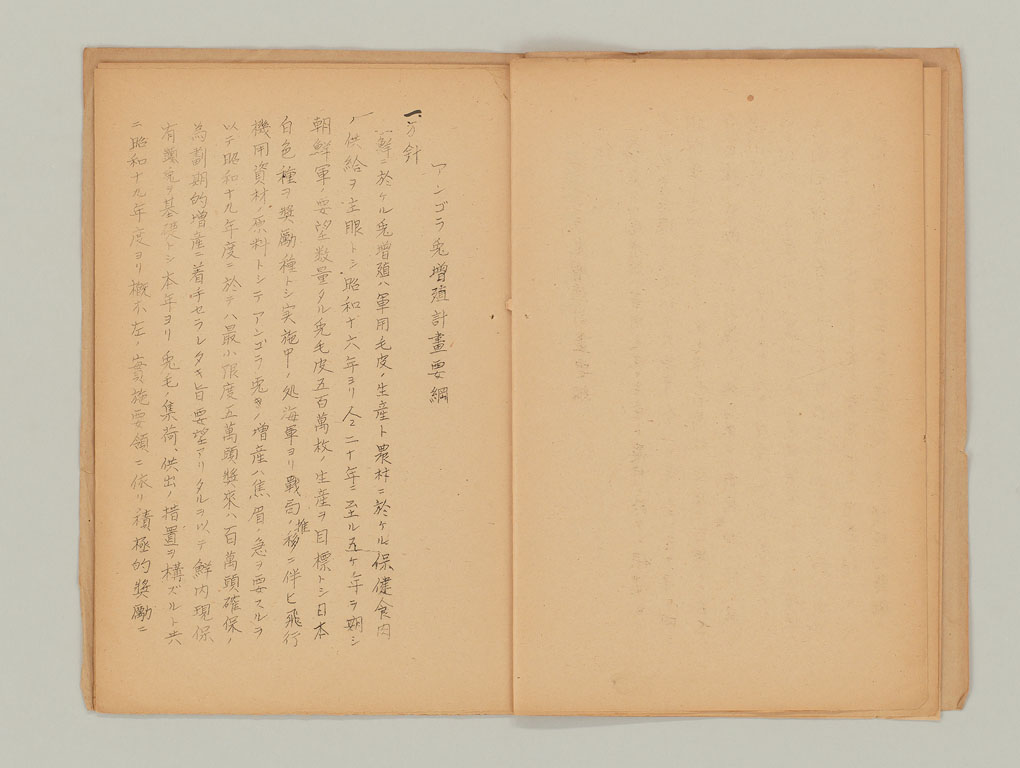 アンゴラ兎増殖計畫要綱
一、方針
鮮ニ於ケル兎増殖ハ軍用毛皮ノ生産ト農村ニ於ケル保健食肉
ノ供給ヲ主眼トシ昭和十六年ヨリ仝二十年ニ至ル五ケ年ヲ期シ
朝鮮軍ノ要望数量タル兎毛皮五百萬枚ノ生産ヲ目標トシ日本
白色種ヲ奬勵種トシ実施中ノ処海軍ヨリ戰局ノ推移ニ伴ヒ飛行
機用資材ノ原料トシテアンゴラ兎毛ノ増産ハ焦眉ノ急ヲ要スルヲ
以テ昭和十九年度ニ於テハ最小限度五萬頭奬來ハ百萬頭確保ノ
為劃期的増産ニ着手セラレタキ旨要望アリタルヲ以テ鮮内現保
有頭兎ヲ基礎トシ本年ヨリ兎毛ノ集荷、供出ノ措置ヲ構ズルト共
ニ昭和十九年度ヨリ概ネ左ノ實施要領ニ依リ積極的奬勵ニ